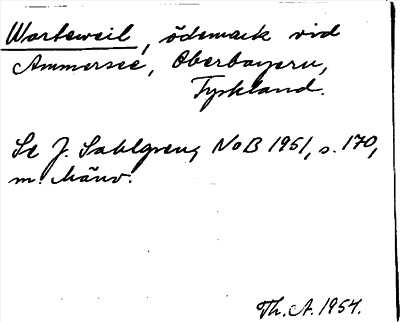 Warteweil, ödemark vid
Ammersee, Oberbayern,
Tyskland.
Se J. Sahlgren, NoB 1951, s. 170,
m. hänv.
Th. A. 1957.